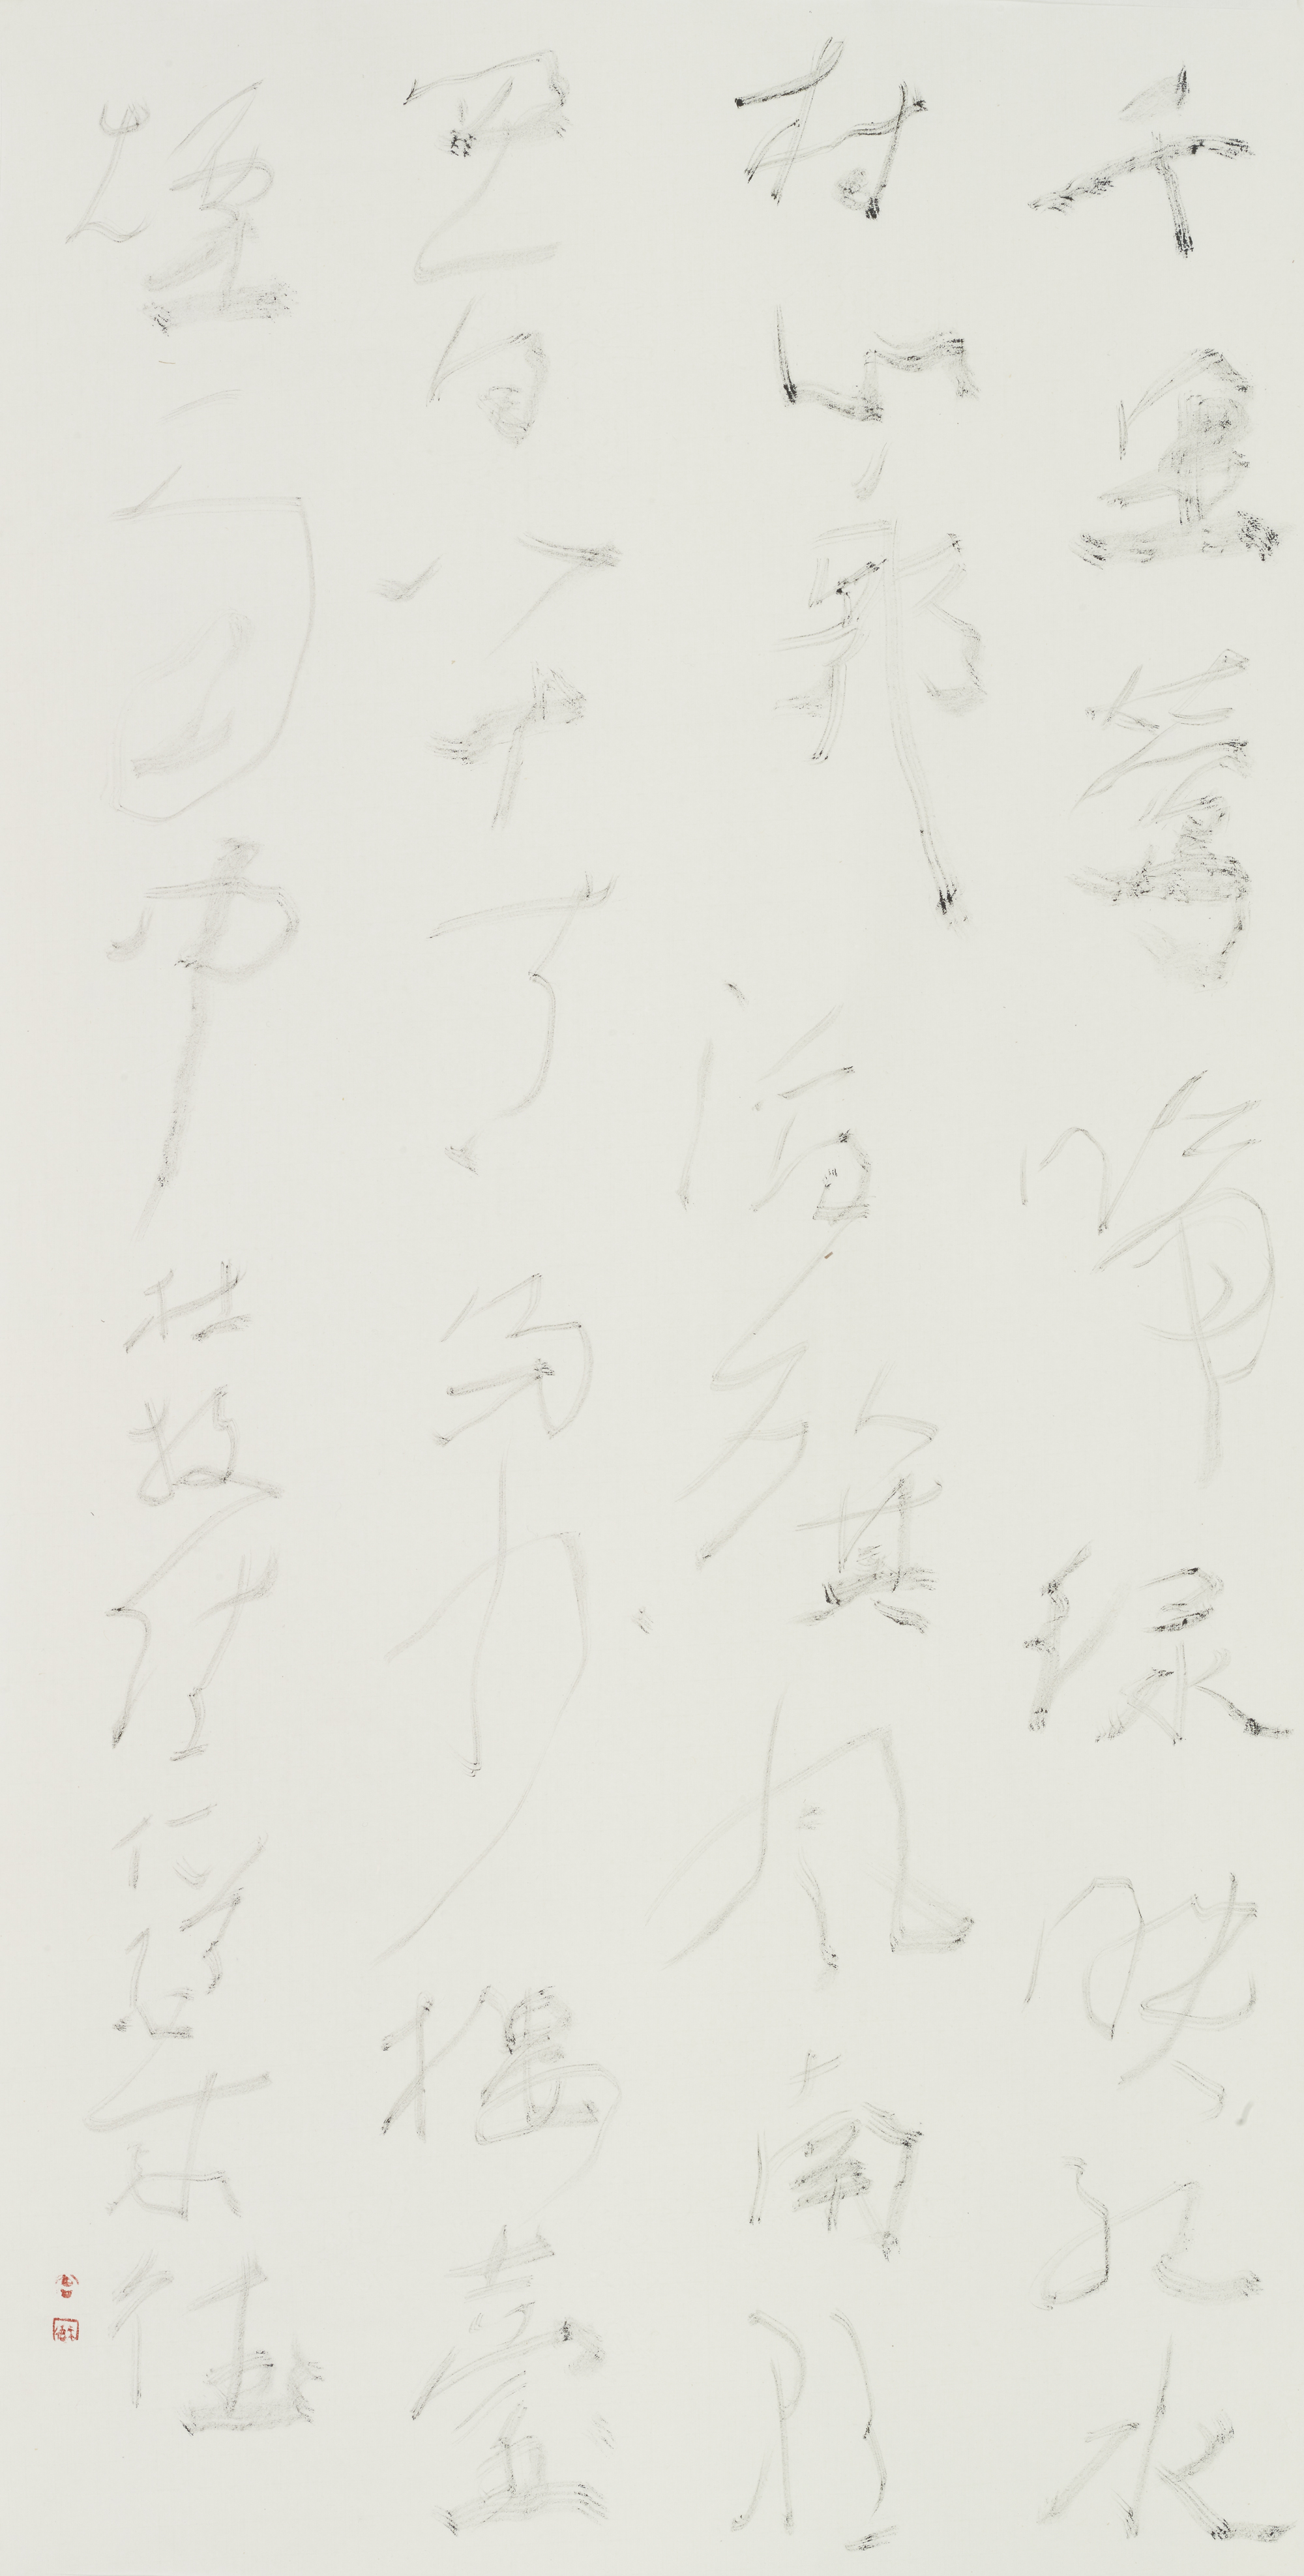 千里鶯啼緑映紅水
村山郭酒旗風南朝
四百八十寺多少樓臺
煙雨中 杜牧